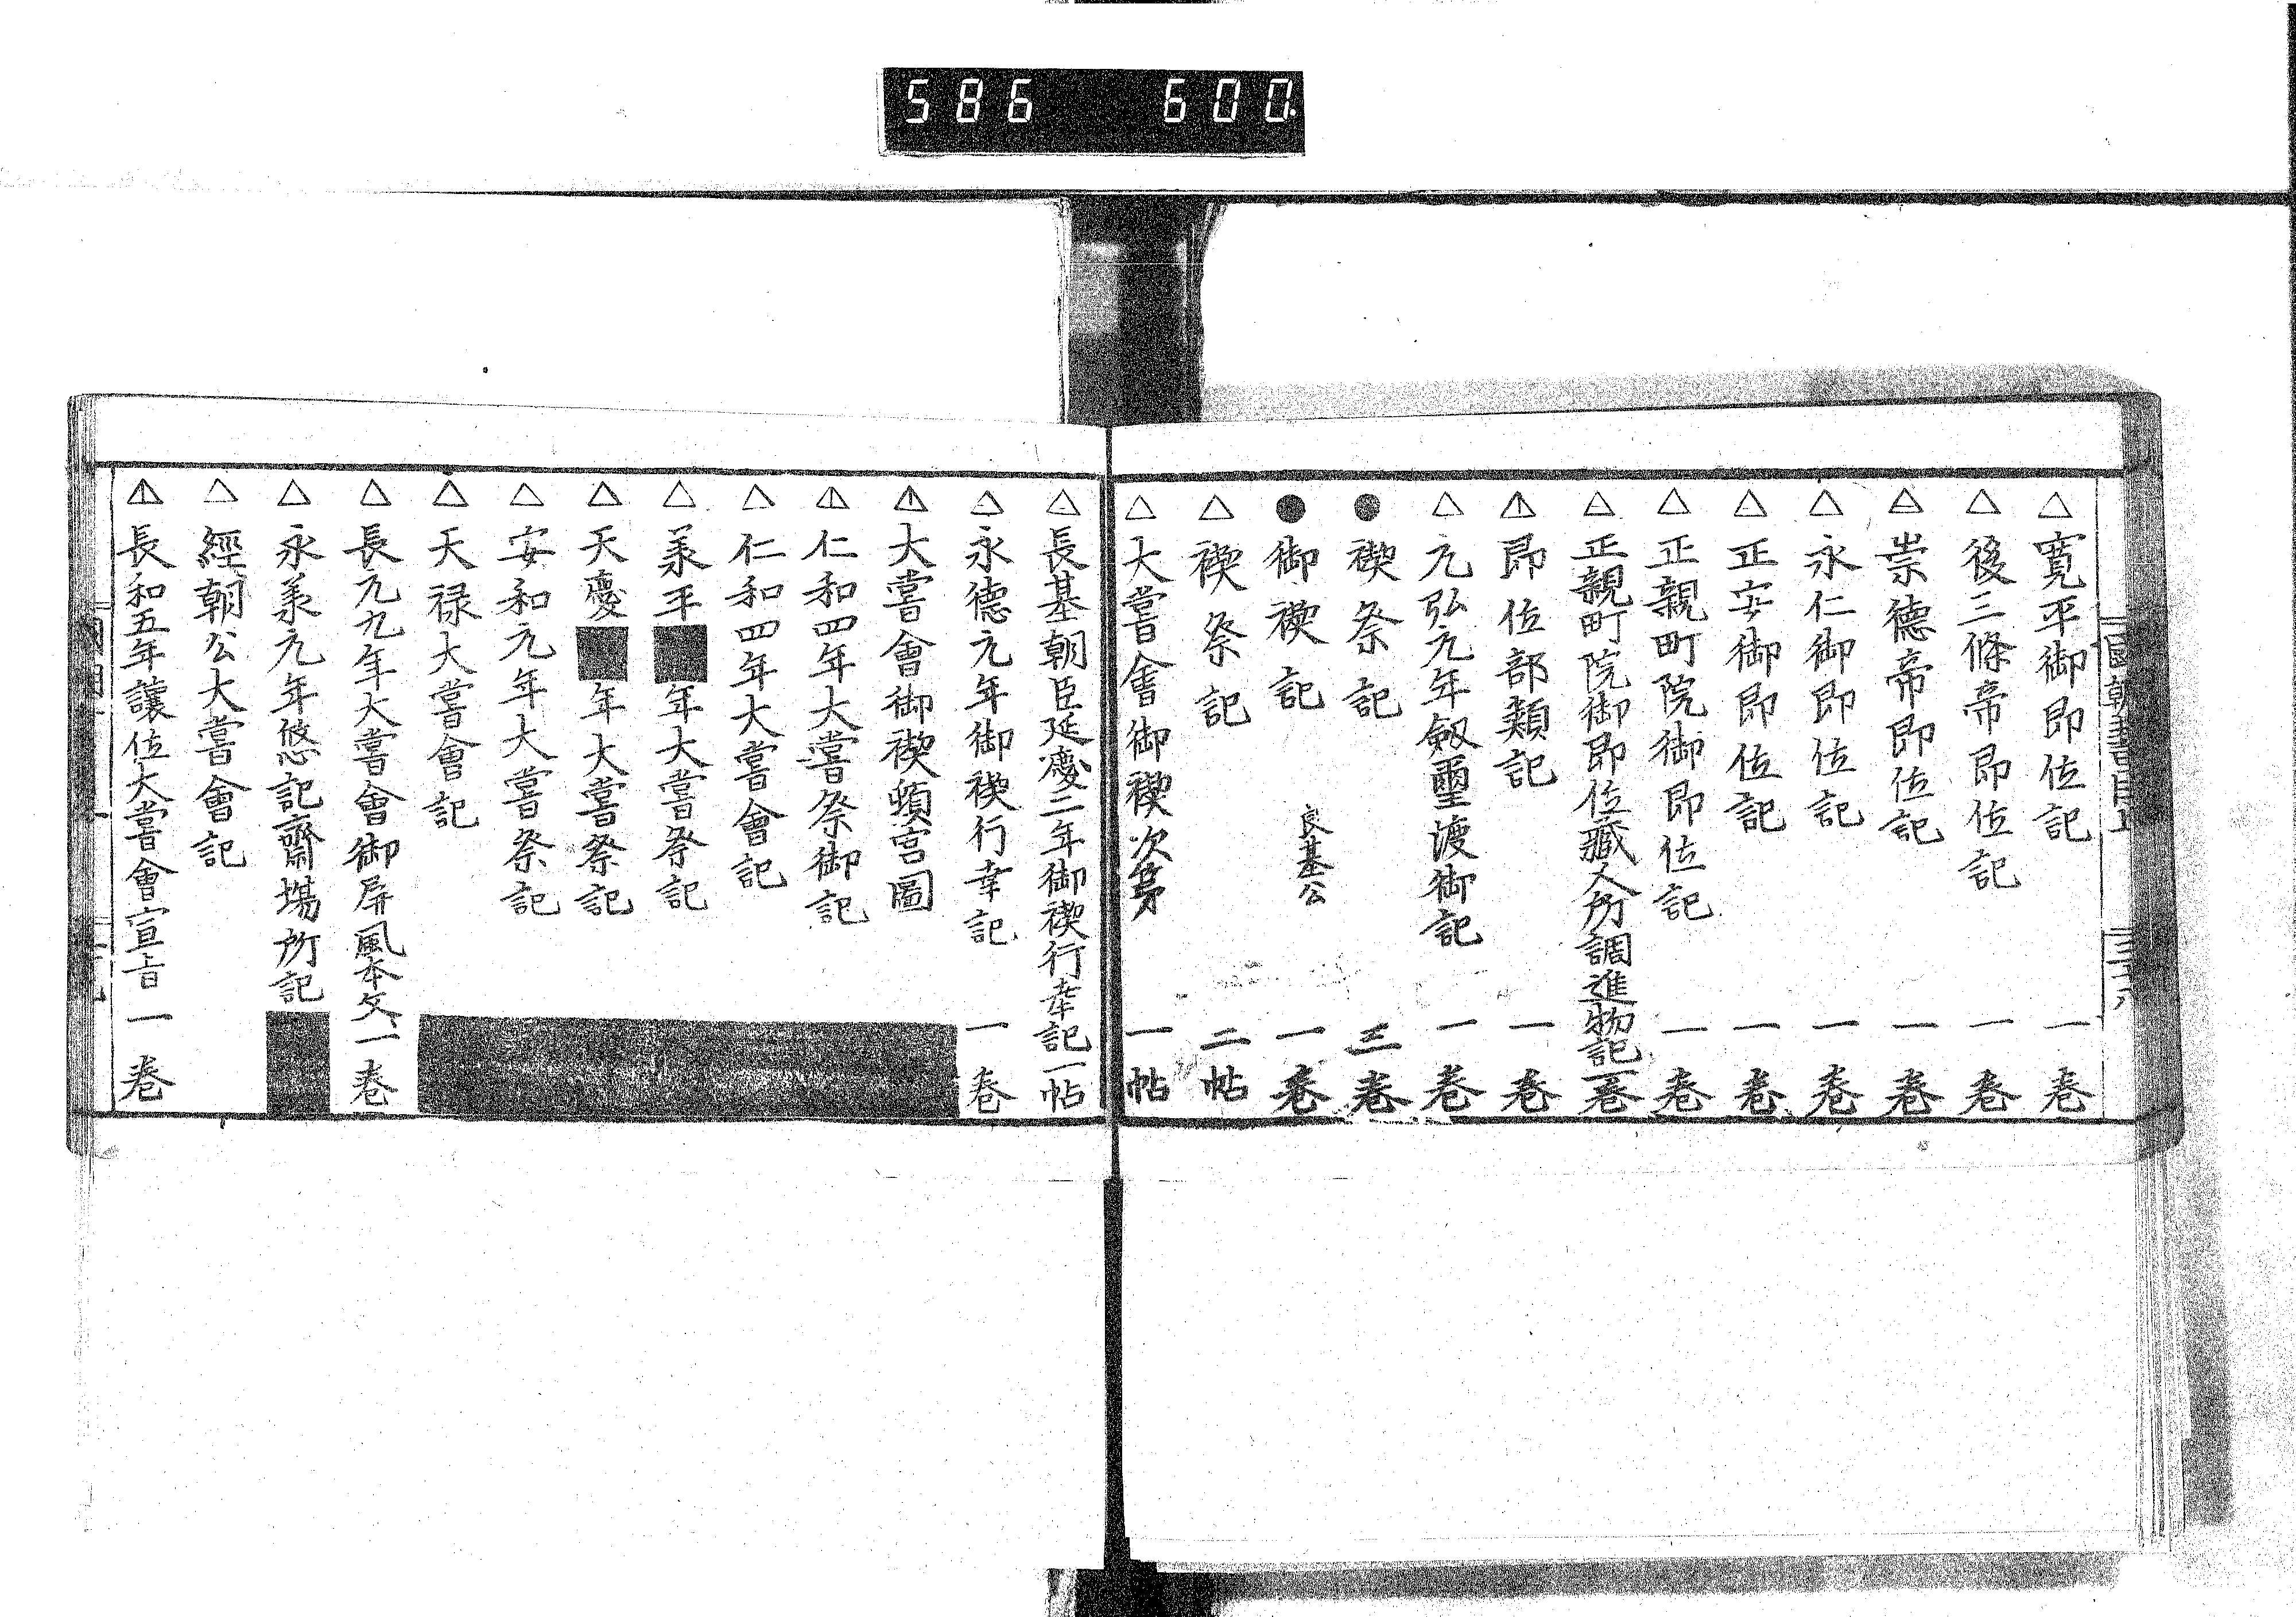 586 600.
國朝書目上 三十六
△寛平御即位記 一巻
△後三條帝即位記 一巻
△崇德帝即位記 一巻
△永仁御即位記 一巻
△正安御即位記 一巻
△正親町院御即位記 一巻
△正親町院御即位藏人所調進物記一巻
△即位部類記 一巻
△元弘元年劔璽渡御記 一巻
●禊祭記 三巻
●御禊記 良基公 一巻
△禊祭記 二帖
△大嘗會御禊次第 一帖
△長基朝臣延慶二年御禊行幸記一帖
△永德元年御禊行幸記 一巻
△大嘗會御禊頓宮圖
△仁和四年大嘗祭御記
△仁和四年大嘗會記
△承平■年大嘗祭記
△天慶■年大嘗祭記
△安和元年大嘗祭記
△天禄大嘗會記
△長元九年大嘗會御屏風本文一巻
△永承元年悠記齋場所記
△經朝公大嘗會記
△長和五年讓位大嘗會宣旨一巻